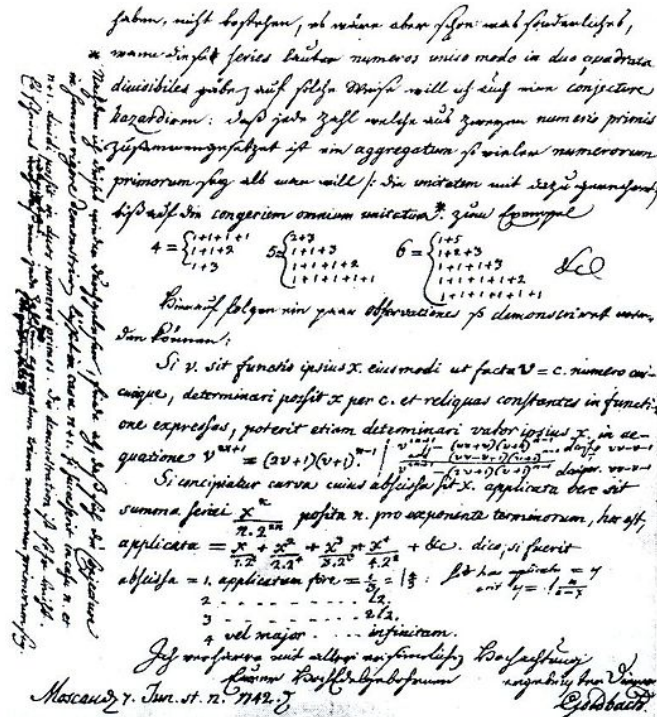 haben, nicht bestehen, es wäre aber schon was sonderliches,
wann diese series lauter numeros unico modo in duo quadrata
divisibiles gäbe, auf solche Weise will ich auch eine conjecture
hazardiren: daß jede Zahl welche aus zweyen numeris primis
zusammengesetzet ist ein aggregatum so vieler numerorum
primorum sey als man will /: die unitatem mit dazu gerechnet
biß auf die congeriem omnium unitatum* zum Exempel
4 = { 1+1+1+1
1+1+2
1+3
5 = { 2+3
1+1+3
1+1+1+2
1+1+1+1+1
6 = { 1+5
1+2+3
1+1+1+3
1+1+1+1+2
1+1+1+1+1+1
&c
Hierauf folgen ein paar observationes so demonstriret wer-
den können:
Si v. sit functio ipsius x. eiusmodi ut facta v = c. numero cui-
cunque, determinari possit x per c. et reliquas constantes in functi-
one expressas, poterit etiam determinari valor ipsius x. in ae-
quatione v^{2n+1} = (2v+1)(v+1)^{n-1}
Si concipiatur curva cuius abscissa sit x. applicata vero sit
summa seriei x^n/(n.2^{2n}) posita n. pro exponente terminorum, hoc est,
applicata = x/(1.2^2) + x^2/(2.2^4) + x^3/(3.2^6) + x^4/(4.2^8) + &c. dico, si fuerit
abscissa = 1. applicatam fore = l 4/3
2 . . . . . . l2.
3 . . . . . . 2l2.
4 vel major . . . . infinitam.
Ich verharre mit aller Hochachtung
Eurer Hochedelgebohrnen
ergebenster Diener
Goldbach
Moscau d. 7. Jun. st. n. 1742.
* Nachdem ich dieses wieder durchgelesen, finde ich, daß sich die conjecture
in summo rigore demonstriren lässet in casu n+1. si successerit in casu n. et
n+1. dividi possit in duos numeros primos. Die demonstration ist sehr leicht.
Es scheinet wenigstens, daß eine jede Zahl die größer ist als 2 ein aggregatum trium numerorum primorum sey.